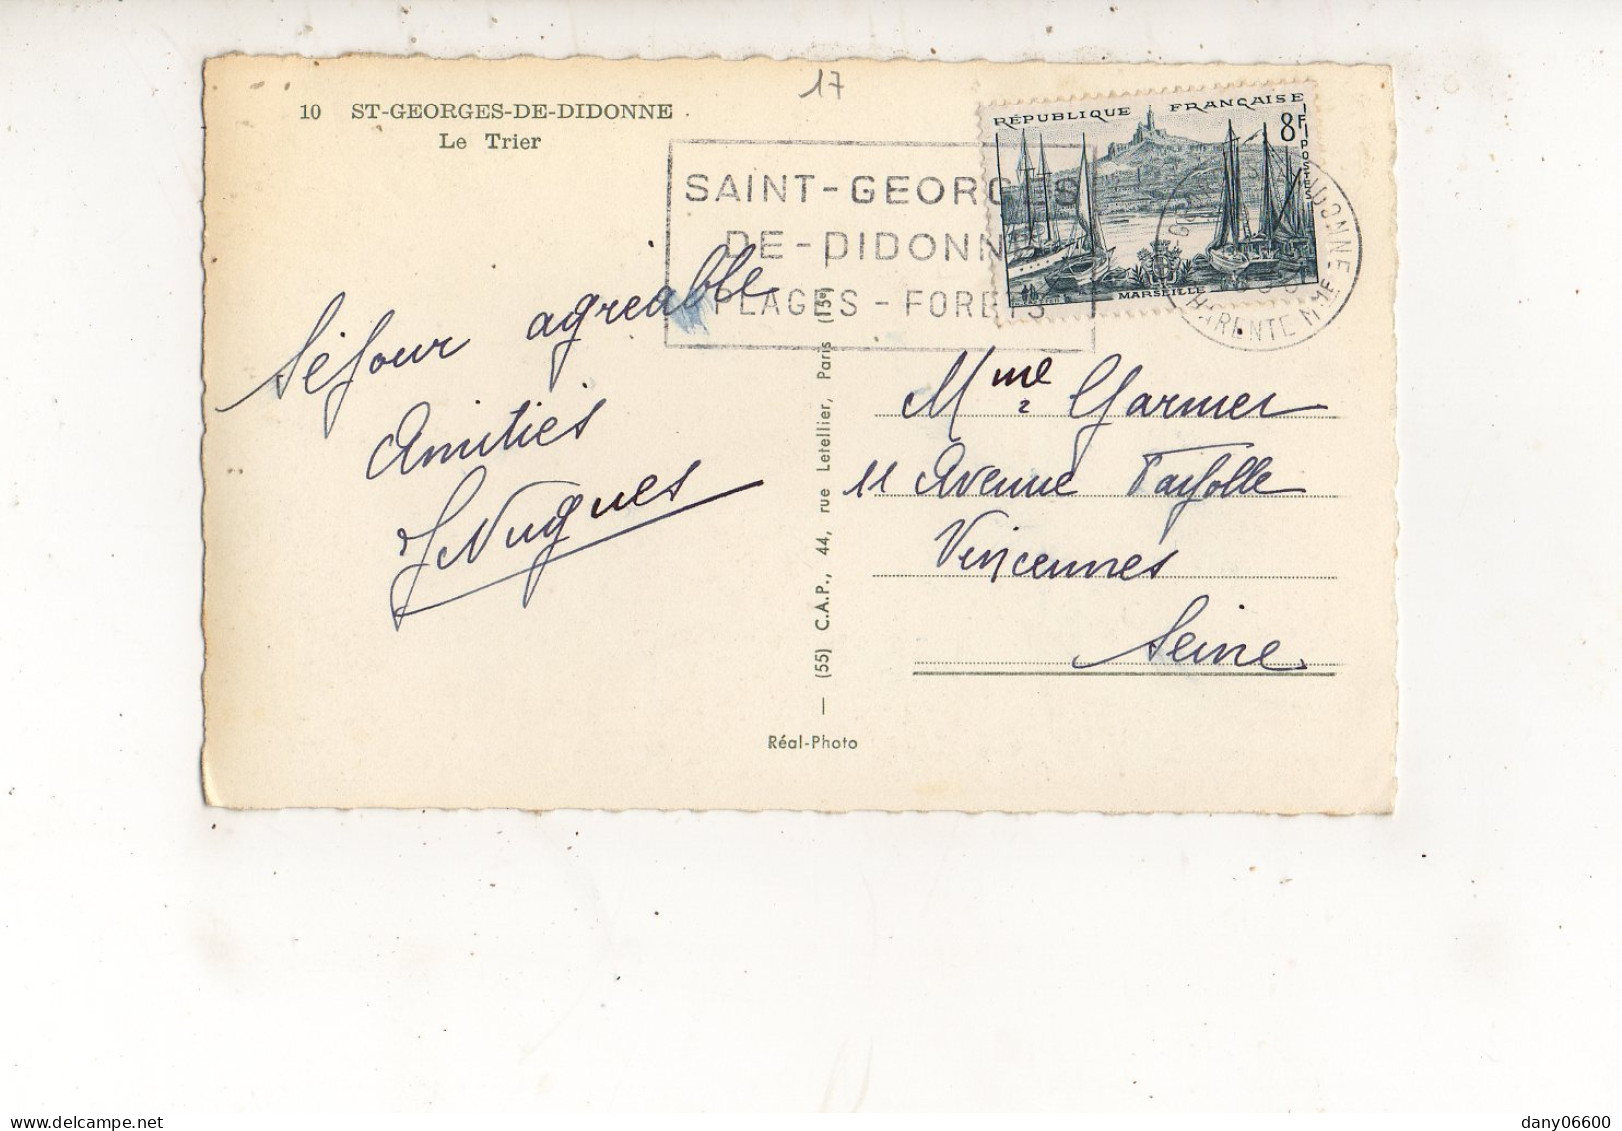 17
10 ST-GEORGES-DE-DIDONNE
Le Trier
SAINT-GEORGES
DE-DIDONNE
PLAGES - FORETS
RÉPUBLIQUE FRANÇAISE
8F
POSTES
MARSEILLE
CHARENTE MME
Séjour agréable
Amitiés
J Nugues
(55) C.A.P., 44, rue Letellier, Paris (15e)
Réal-Photo
Mme Garnier
11 Avenue Fayolle
Vincennes
Seine
dany06600